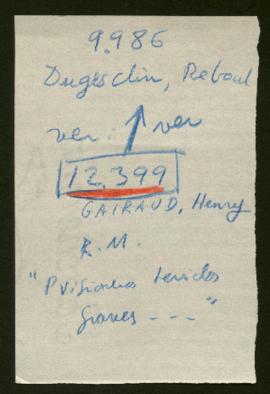 9.986
Duguesclin, Reboul
ver: ver
12,399
GAIRAUD, Henry
R.M.
" leridos
graves - - - "